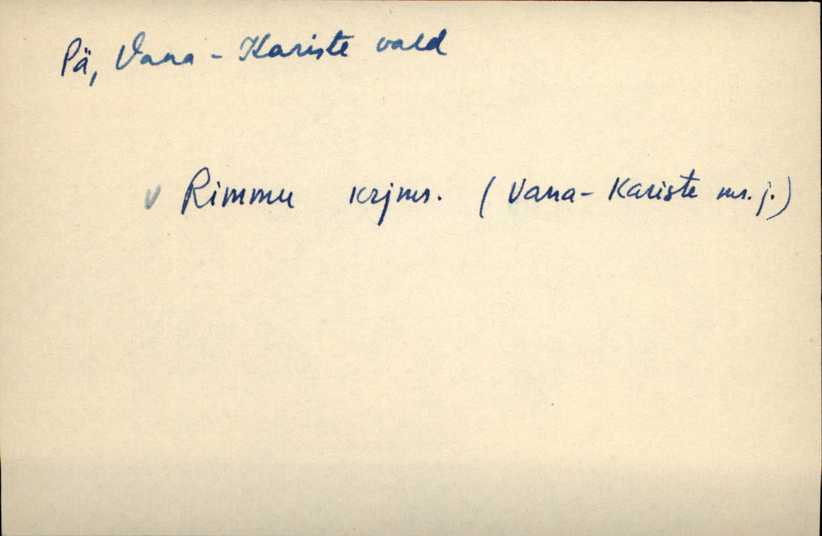 Pä, Vana-Kariste vald
v Rimmu krjms. (Vana-Kariste ms. j.)